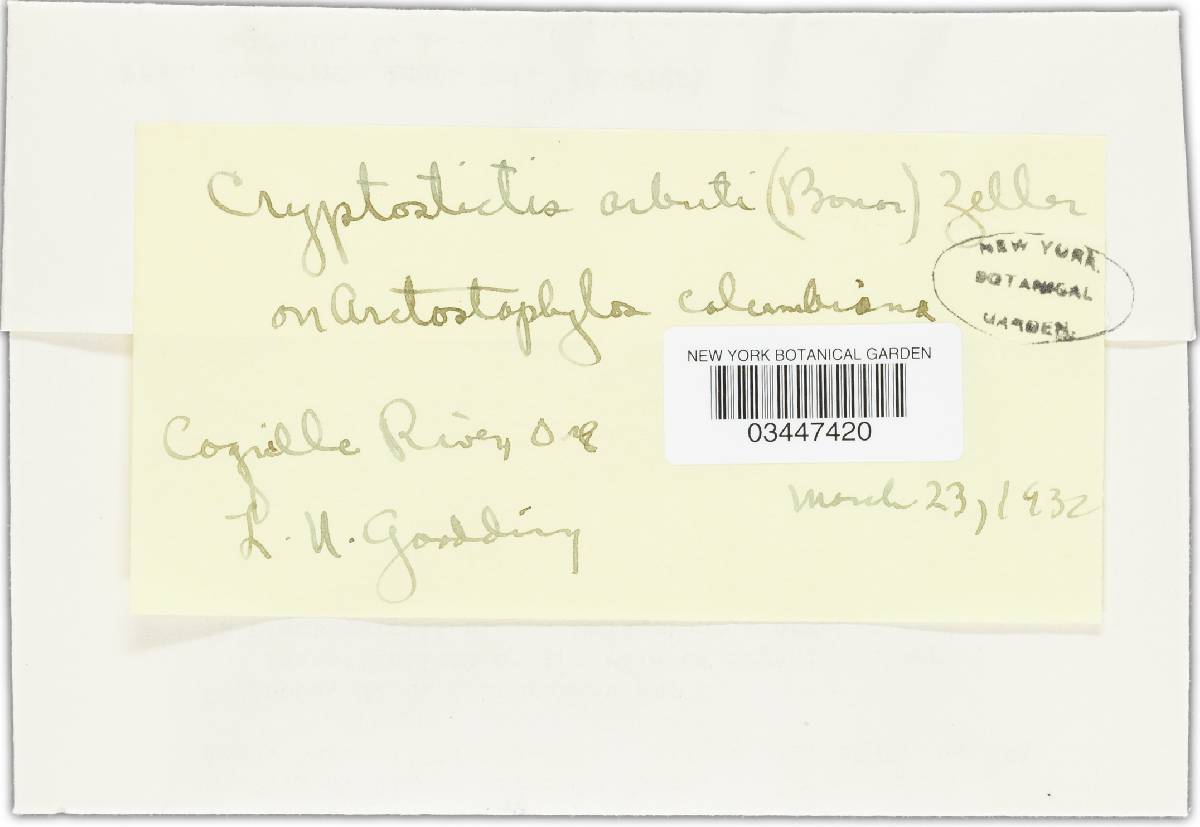 Cryptostictis arbuti (Bonar) Zeller
on Arctostaphylos columbiana
NEW YORK
BOTANICAL
GARDEN.
NEW YORK BOTANICAL GARDEN
03447420
Coquille River, Ore
March 23, 1932
L. N. Goodding